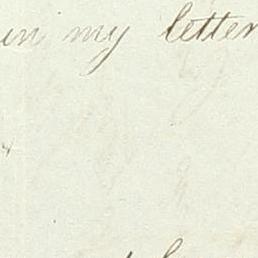 in my letter